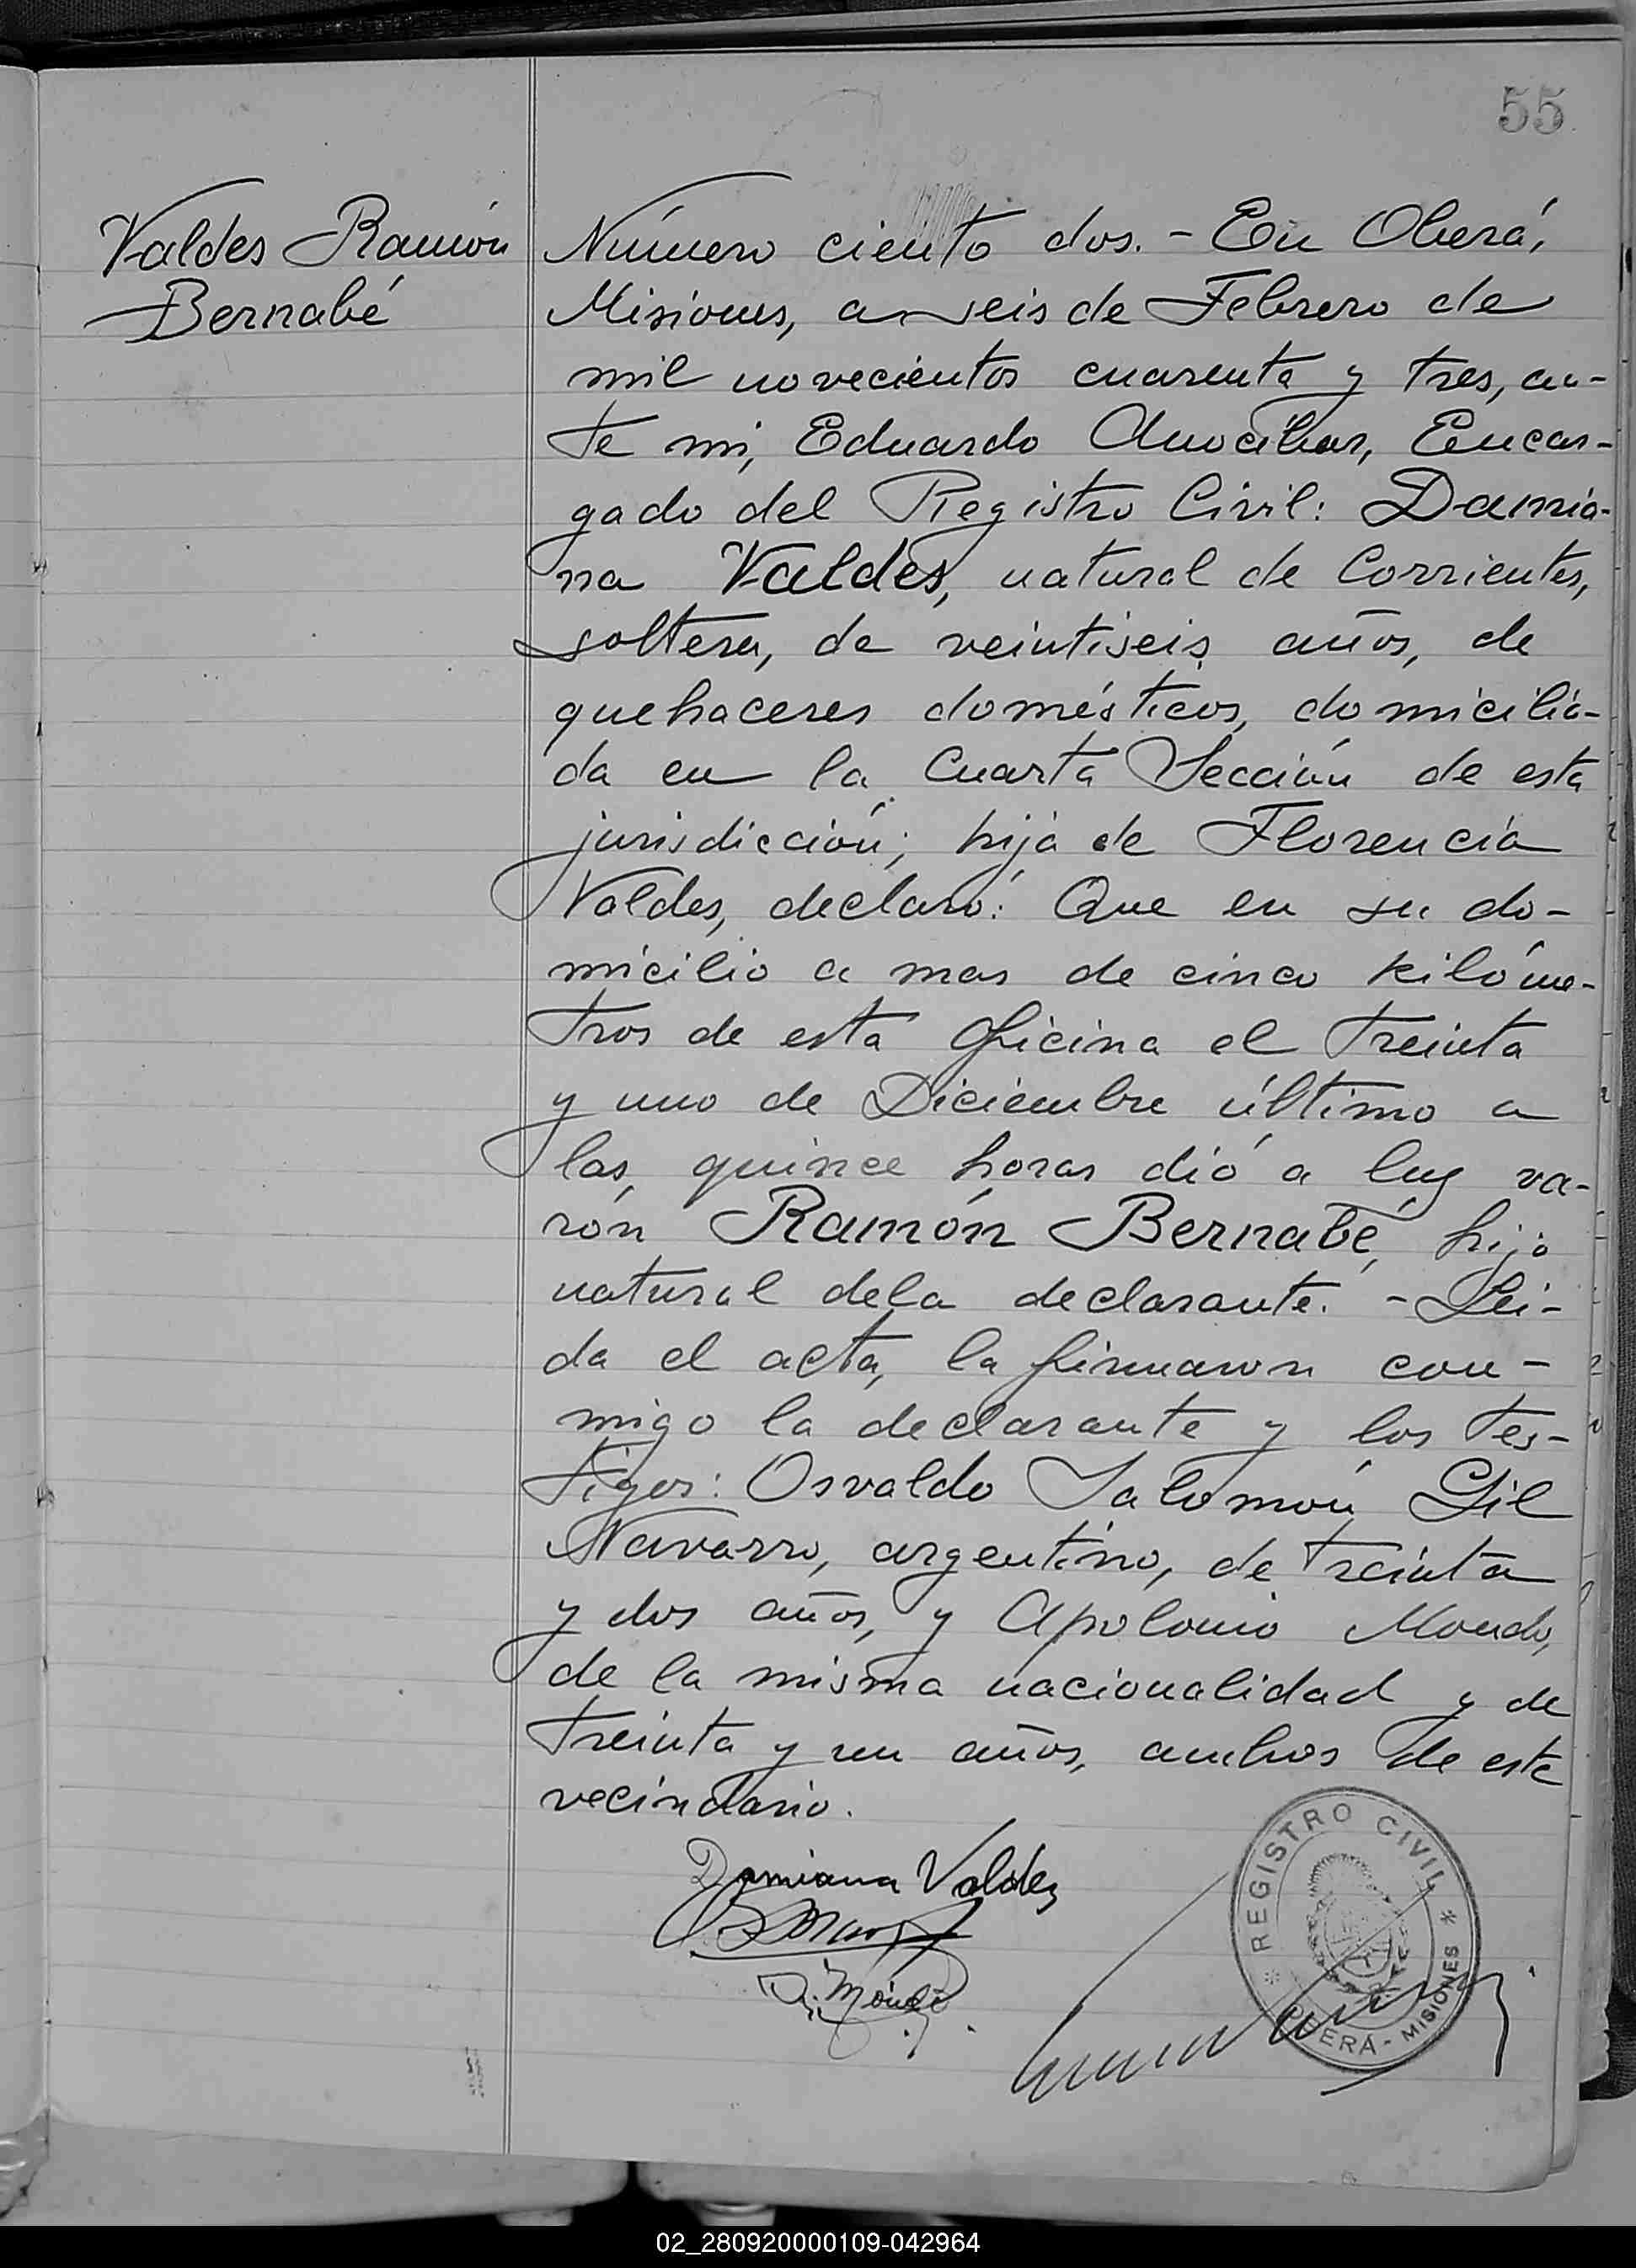 55
Valdes Ramón
Bernabé
Número ciento dos. - En Oberá,
Misiones, a seis de Febrero de
mil novecientos cuarenta y tres, an-
te mi, Eduardo Anocíbar, Encar-
gado del Registro Civil: Damia-
na Valdes, natural de Corrientes,
soltera, de veintiseis años, de
quehaceres domésticos, domicilia-
da en la Cuarta Sección de esta
jurisdicción; hija de Florencia
Valdes, declaró: Que en su do-
micilio a mas de cinco kilóme-
tros de esta Oficina el treinta
y uno de Diciembre último a
las quince horas dió a luz va-
rón Ramón Bernabé, hijo
natural dela declarante. - Leí-
da el acta, la firmaron con-
migo la declarante y los tes-
tigos: Osvaldo Salomón Gil
Navarro, argentino, de treinta
y dos años, y Apolonio Mondo,
de la misma nacionalidad y de
treinta y un años, ambos de este
vecindario.
Damiana Valdez
REGISTRO CIVIL
OBERÁ - MISIONES
02_280920000109-042964